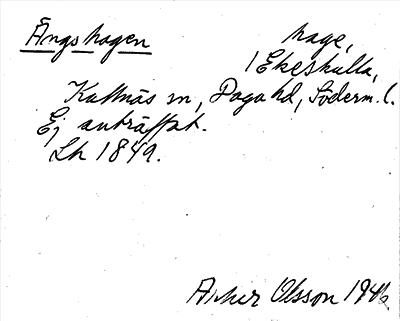 Ängshagen hage,
i Ekeshulta,
Kattnäs sn, Daga hd, Söderm. l.
Ej anträffat.
Lh 1849.
Olsson 1946